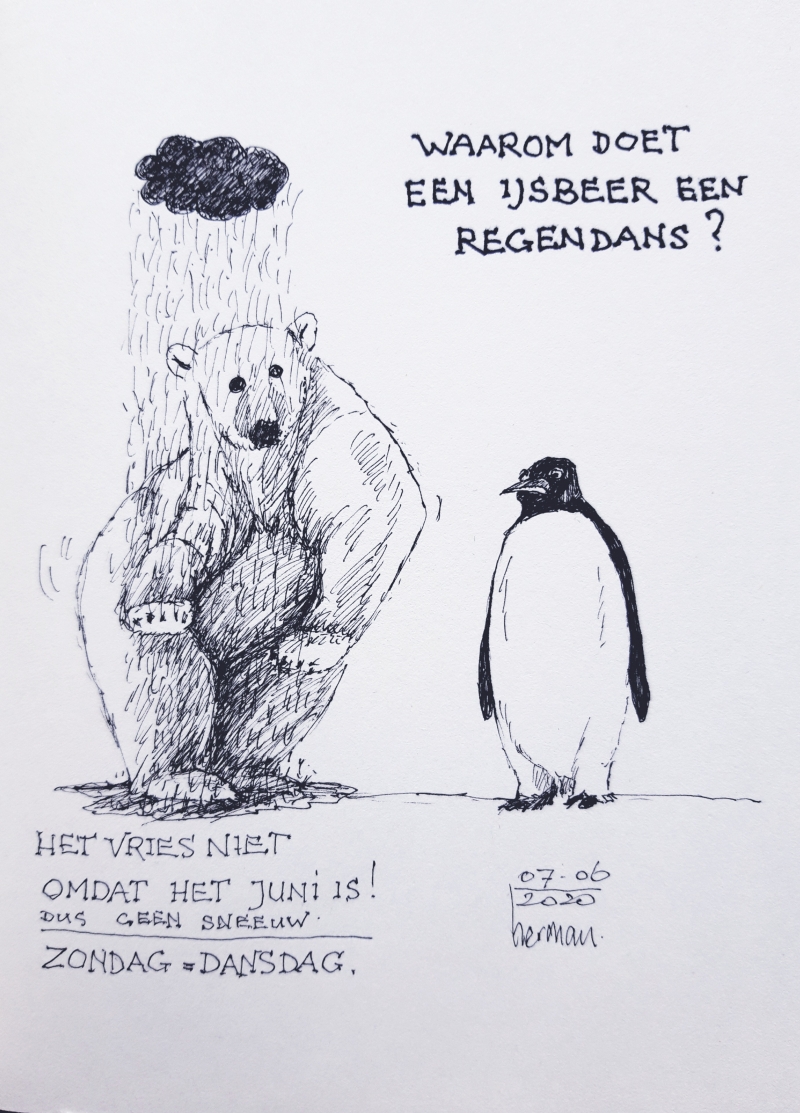 WAAROM DOET
EEN IJSBEER EEN
REGENDANS?
HET VRIES NIET
OMDAT HET JUNI IS!
DUS GEEN SNEEUW.
ZONDAG = DANSDAG.
07-06
2020
herman.